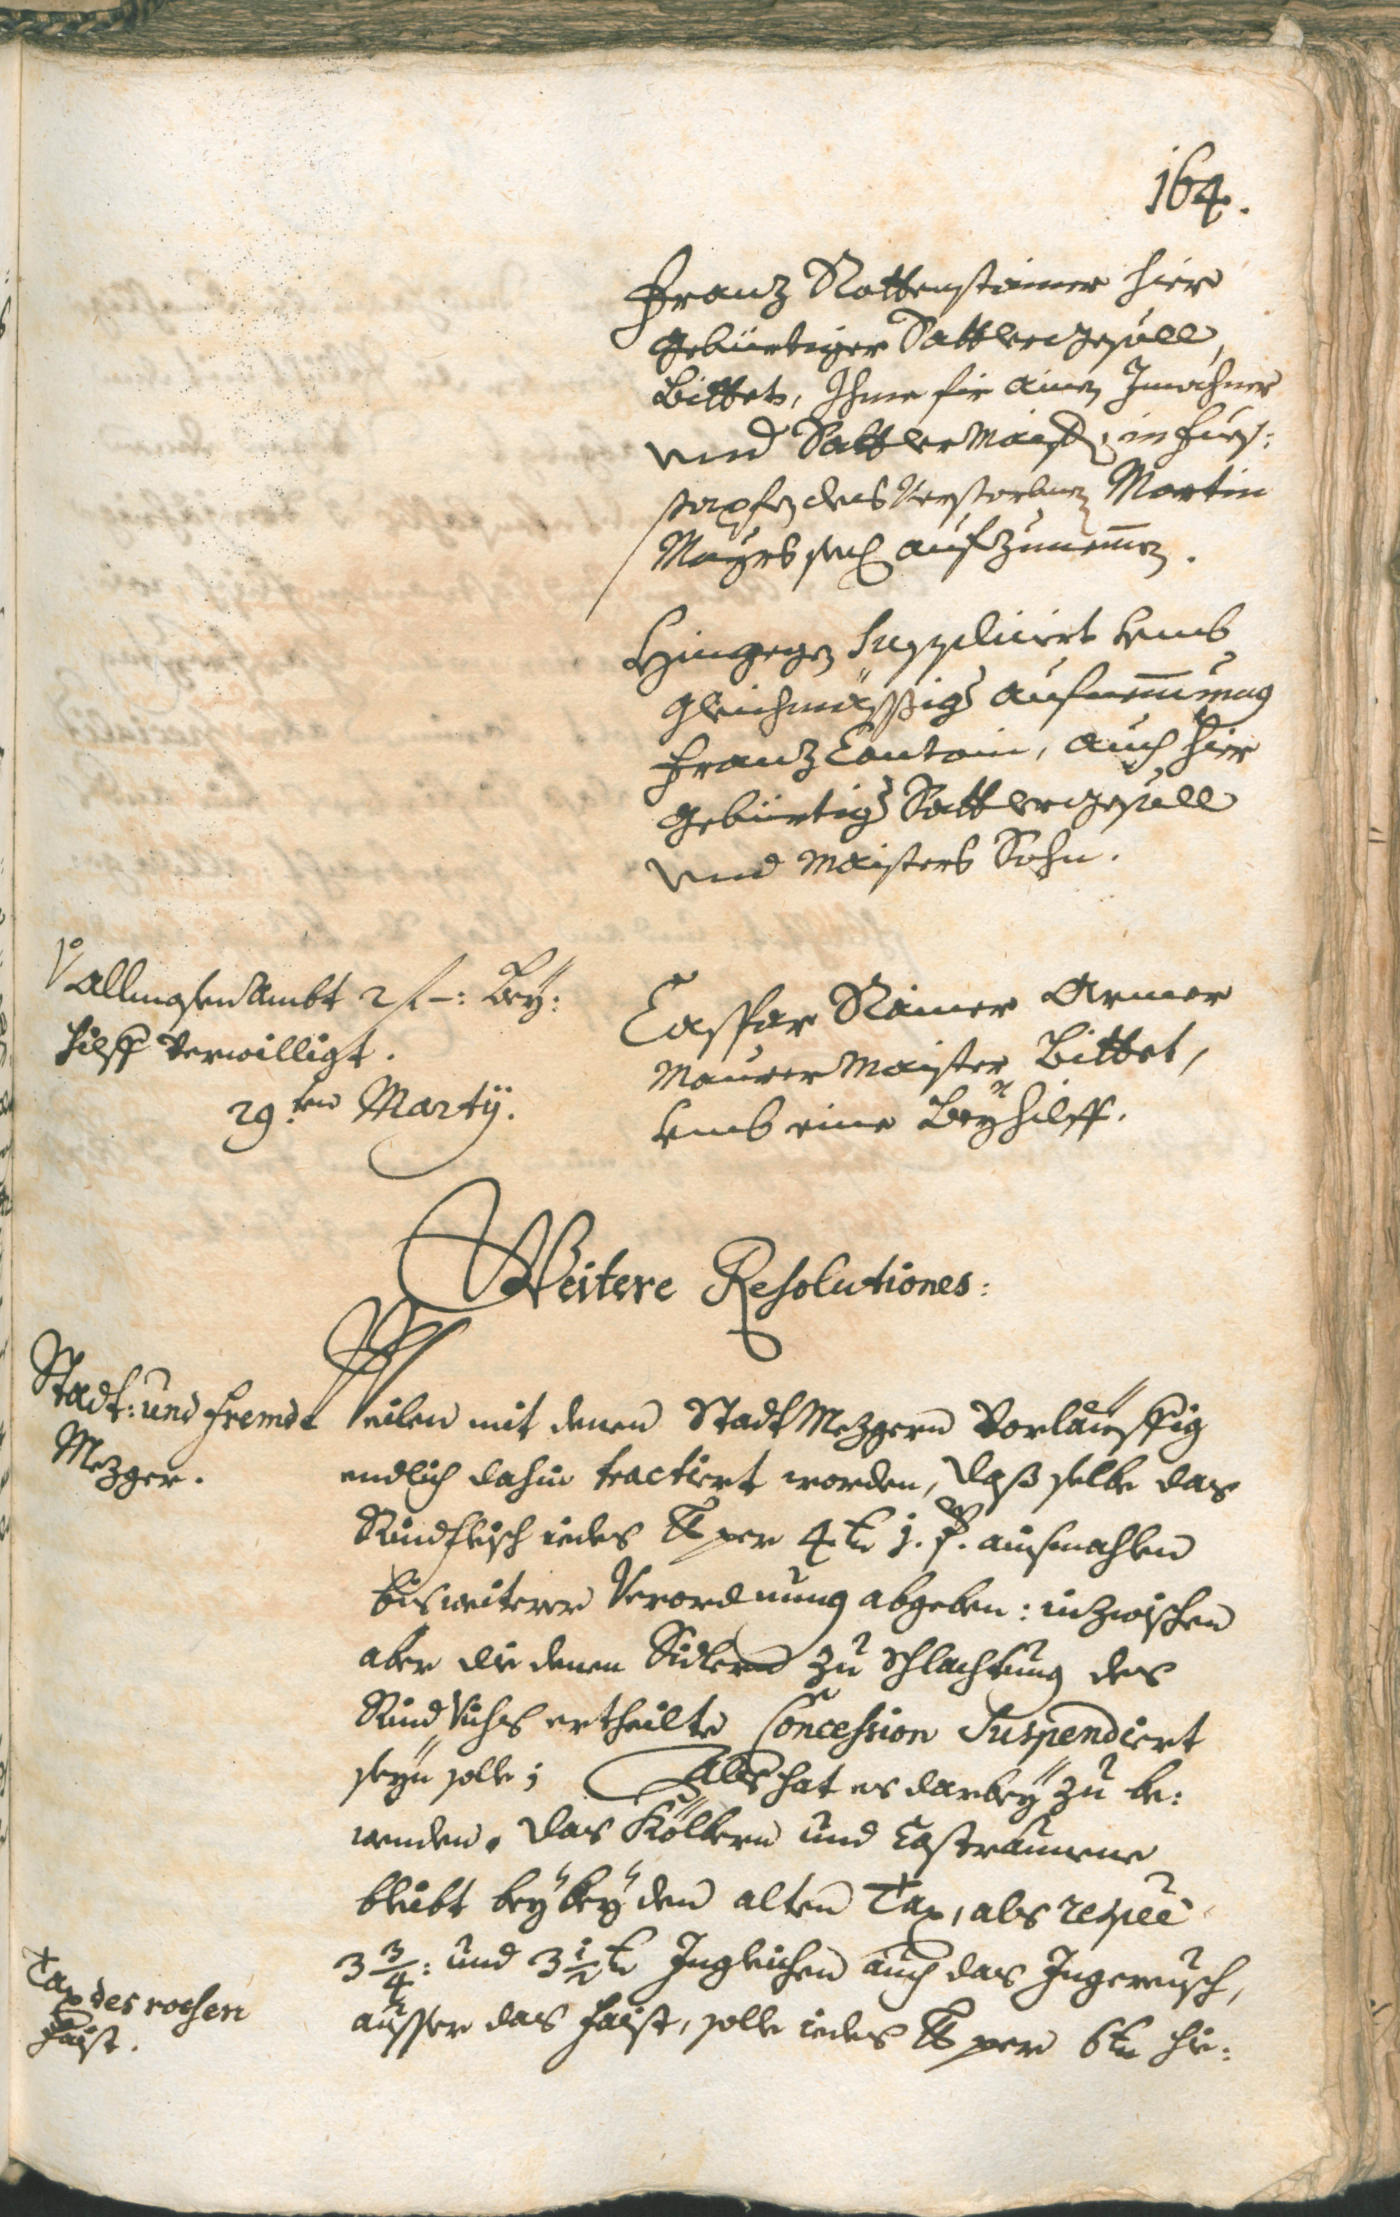 164.
Franz Rottensteiner hier
gebürtiger Sattlergesöll,
bittet, Ihme für ainen Inwohner
und Sattler Maister in fues:
stapfen des Verstorbnen Martin
Mayrs seel: aufzunemmen.
Hingegen Suppliciert umb
gleichmässige aufnemmung
Franz Contrin, auch hier
gebürtiger Sattlergesöll
und Maisters Sohn.
Vom allmosen Ambt 2 f –: Bey:
hilff verwilligt.
29.ten Martÿ.
Caspar Rainer Armer
Maurer Maister bittet,
umb eine Beyhilff.
Weitere Resolutiones:
Stadt: und fremde
Mezger.
Weilen mit denen Stadt Mezgern Vorläuffig
endlich dahin tractiert worden, daß selbe das
Rindfleisch iedes ℔ per 4 kr 1. f. ausmahlen
bis weiterer Verordnung abgeben: inzwischen
aber die denen Sidlern zu schlachtung des
Rind Vichs ertheilte Concession Suspendiert
seyn solle; Als hat es darbey zu be:
wenden. Das Kölbern und Castraunene
bleibt bey bey den alten Tax, als respec:
3 3/4: und 3 1/2 kr Ingleichen auch das Ingereusch,
ausser das faist, solle iedes ℔ per 6 kr hie:
Tax des rochen
faist.